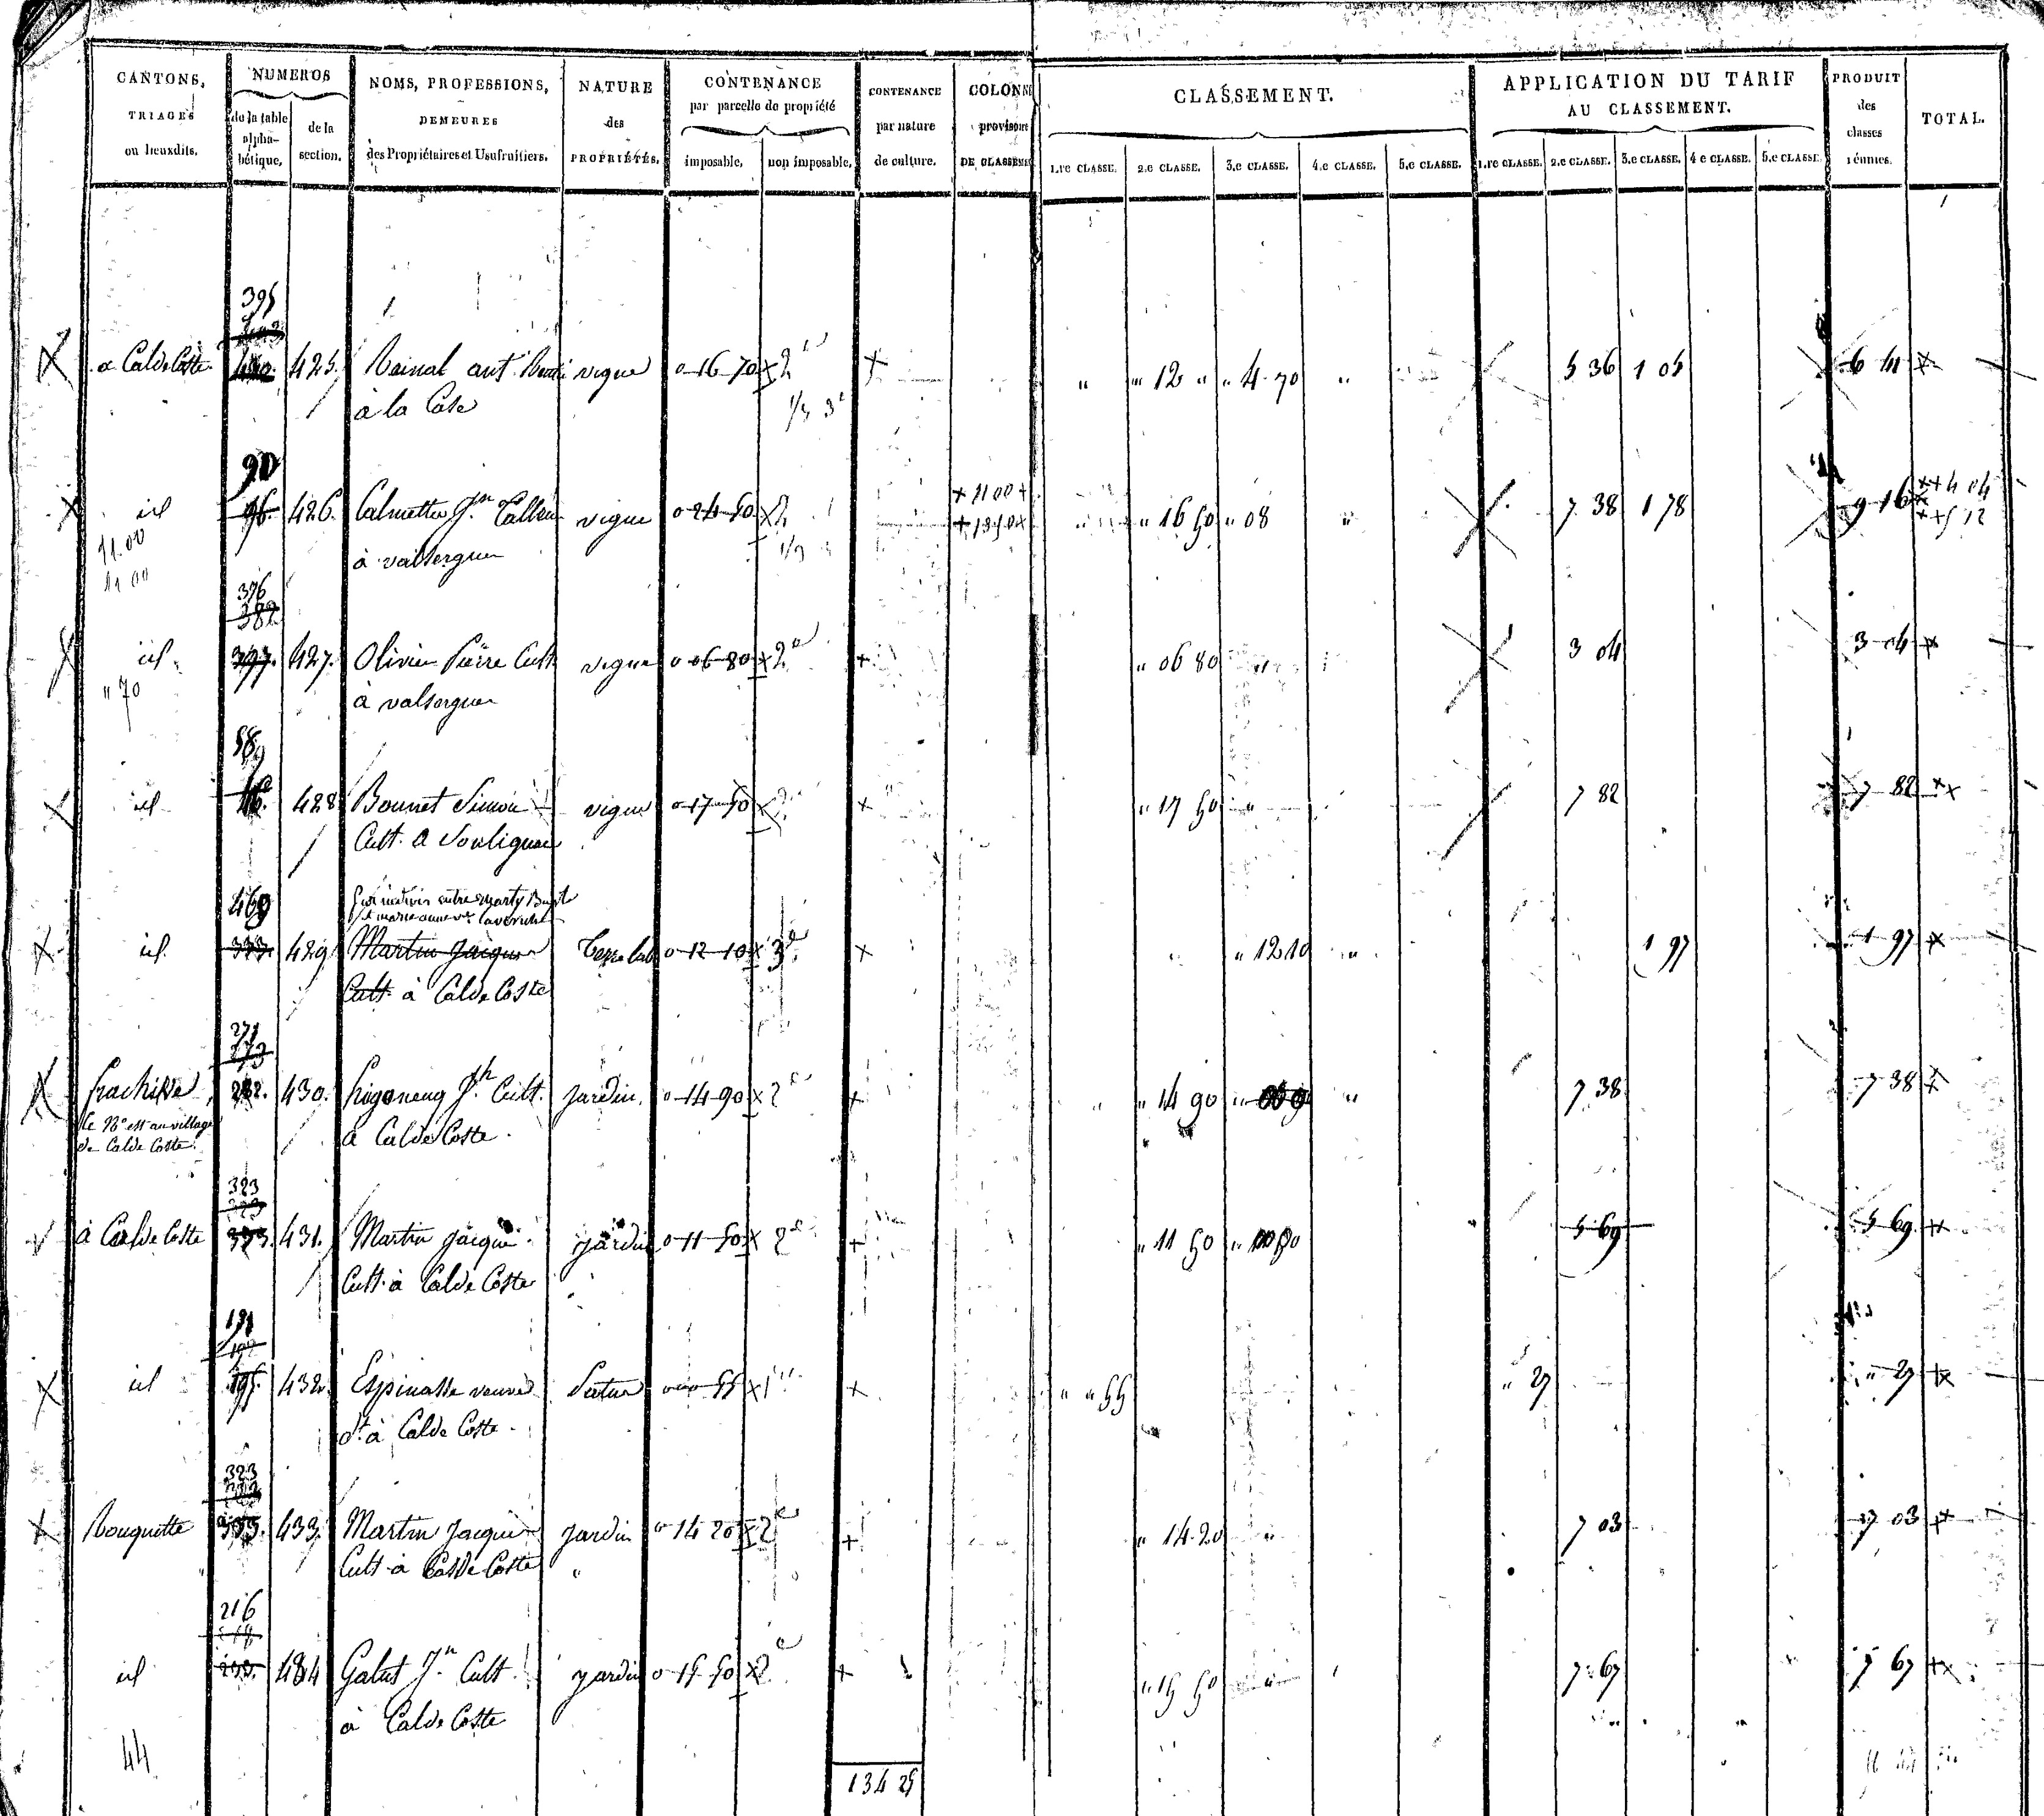 CANTONS, TRIAGES ou lieuxdits.
NUMEROS
de la table alpha-bétique,
de la section.
NOMS, PROFESSIONS, DEMEURES des Propriétaires et Usufruitiers.
NATURE des PROPRIÉTÉS.
CONTENANCE par parcelle de propriété
imposable,
non imposable,
CONTENANCE par nature de culture.
COLONNE provisoire DE CLASSEME
CLASSEMENT.
1.re CLASSE. 2.e CLASSE. 3.e CLASSE. 4.e CLASSE. 5.e CLASSE.
APPLICATION DU TARIF AU CLASSEMENT.
1.re CLASSE. 2.e CLASSE. 3.e CLASSE. 4 e CLASSE. 5.e CLASSE.
PRODUIT des classes réunies.
TOTAL.
395
a Calde Coste 425. Reinal ant. vigne 0 16 70 x 2e + " " 12 " " 4 70 " 5 36 1 05 6 41
à la Case
1/3 3e
90
id 96. 426. Calmettes Jn vigne 0 24 50 x 2 " 16 50 " 08 " 7 38 1 78 9 16
à valsergues
+ 11 00 +
+ 13 50 x
x+ 4 04
x+ 5 12
11.00
11 00
376
382
id. 397. 427. Olivier Pierre Cult vigne 0 06 80 x 2e + " 06 80 " 3 04 3 04
" 70
à valsergues
58
id 428 Bonnet Simon vigne 0 17 50 x 2e + " 17 50 " 7 82 7 82
Cult. a Soulignac
469
indivis entre marty
marie anne
id. 333. 429. Martin Jacques Terre lab 0 12 10 x 3e + " 12 10 " 1 97 1 97
Cult. à Calde Coste
271
273
282. 430. Jh Cult. jardin. 0 14 90 x 2e + " 14 90 " " 7 38 7 38
le No est au village
de Calde Coste.
a Calde Coste.
323
à Calde Coste 333. 431. Martin Jacques jardin 0 11 50 x 2e + " 11 50 " 5 69 5 69
Cult. à Calde Coste
191
192
id 195. 432. Espinasse veuve Patus 0 00 55 x 1re + " " 55 " 27 " 27
dt à Calde Coste.
323
Rouquette 333. 433. Martin Jacques jardin 0 14 20 x 2e + " 14 20 " 7 03 7 03
Cult. à Calde Coste
216
id 434 Galut Jn Cult. jardin 0 15 50 x 2e + " 15 50 " 7 67 7 67
à Calde Coste
44
134 25